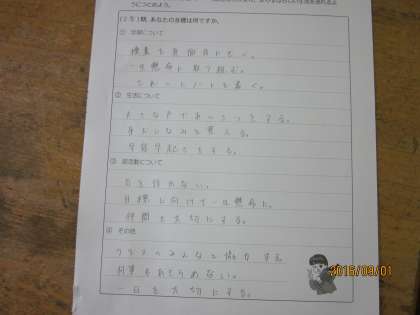 うにつとめよう。
(2学)期、あなたの目標は何ですか。
① 学習について
授業を真面目にする。
一生懸命に取り組む。
きれいにノートを書く。
② 生活について
大きな声であいさつをする。
身だしなみを整える。
早寝早起きをする。
③ 部活動について
目標に向けて一生懸命。
仲間を大切にする。
④ その他
クラスのみんなと協力する
何事もあきらめない。
一日を大切にする。
2015/09/01